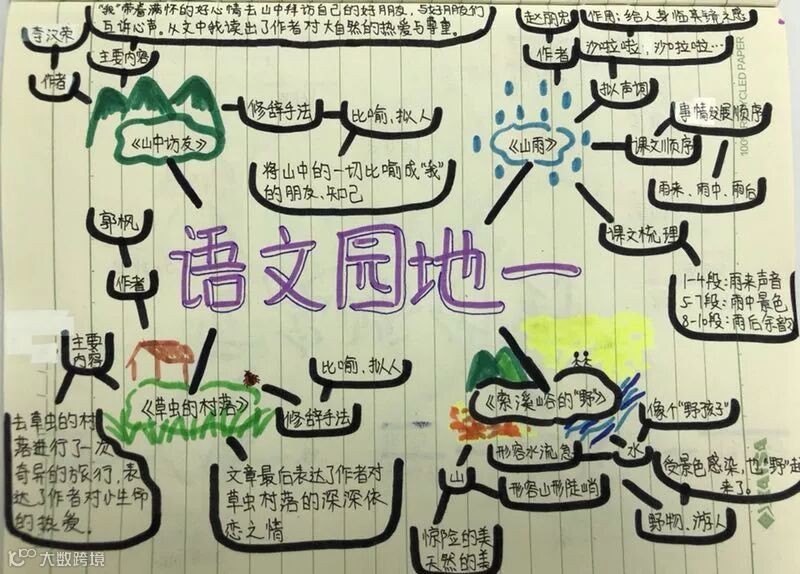 "我"带着满怀的好心情去山中拜访自己的好朋友,与好朋友们
互诉心声。从文中我读出了作者对大自然的热爱与尊重。
李汉荣
作者
主要内容
《山中访友》
修辞手法
比喻、拟人
将山中的一切比喻成"我"
的朋友、知己
赵丽宏
作者
作用:给人身临其境之感
沙啦啦,沙啦啦…
拟声词
《山雨》
事情发展顺序
课文顺序
雨来、雨中、雨后
课文梳理
1-4段:雨来声音
5-7段:雨中景色
8-10段:雨后余韵
语文园地一
郭枫
作者
主要
内容
《草虫的村落》
比喻、拟人
修辞手法
去草虫的村
落进行了一次
奇异的旅行,表
达了作者对小生命
的热爱。
文章最后表达了作者对
草虫村落的深深依
恋之情
《索溪峪的"野"》
像个"野孩子"
形容水流急
水
山
形容山形陡峭
受景色感染,也"野"起
来了。
野物、游人
惊险的美
天然的美
大数跨境